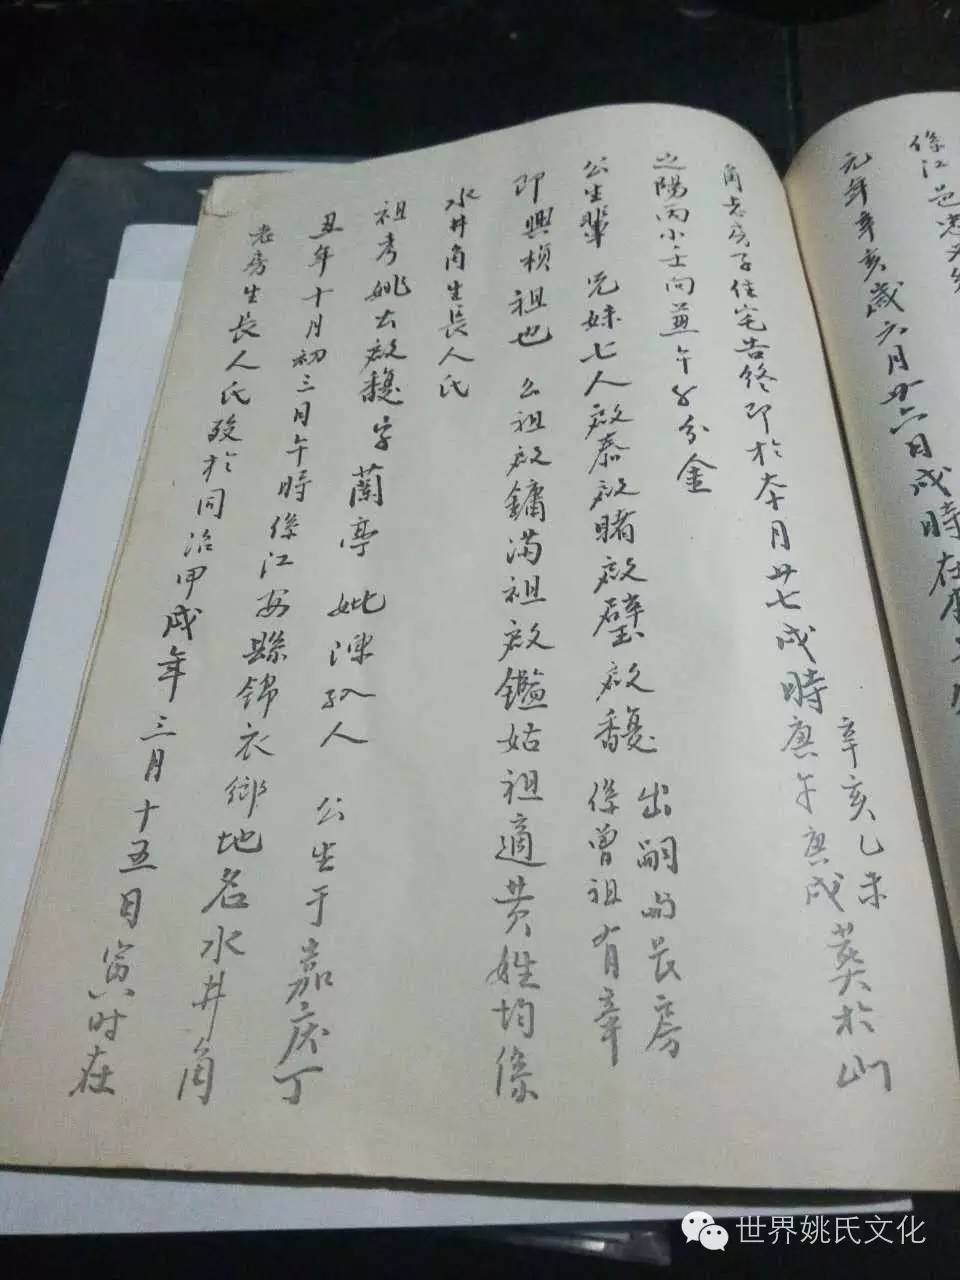 係江邑
元年辛亥歲六月廿六日戌時在
角老房子住宅告終即於本十月廿七戌時庚午庚戌葬於山
辛亥乙未
之陽丙小壬向兼午子分金
公生輩兄妹七人啟泰啟睹啟璧啟馥係曾祖有章
出嗣長房
即興楨祖也么祖啟鏞滿祖啟鑑姑祖適黄姓均係
水井角生長人氏
祖考姚公啟馥字蘭亭妣陳孺人公生于嘉庆丁
丑年十月初三日午時係江安縣錦衣鄉地名水井角
老房生長人氏殁於同治甲戌年三月十五日寅时在
世界姚氏文化